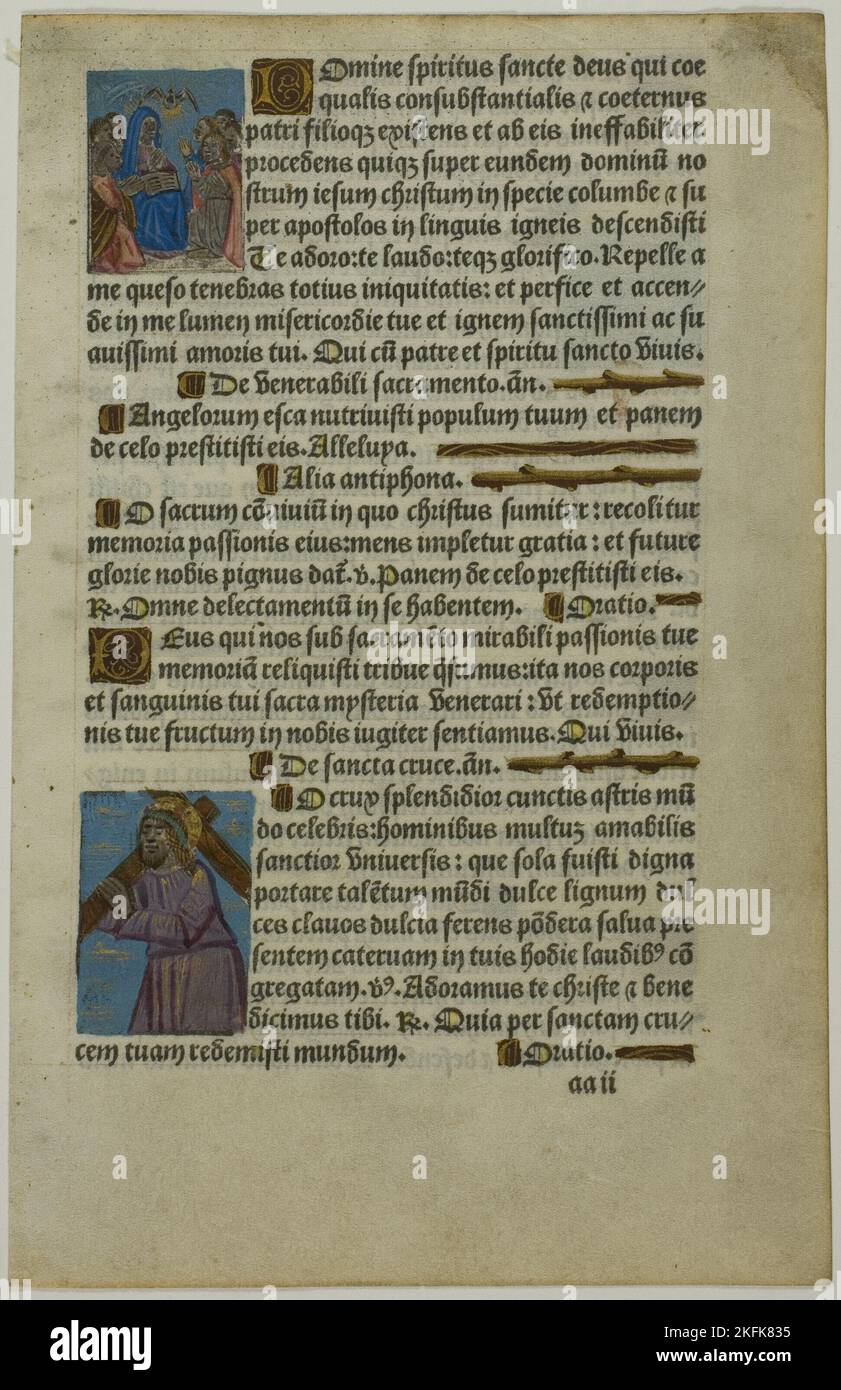 Domine spiritus sancte deus qui coe
qualis consubstantialis ⁊ coeternus
patri filioqꝫ existens et ab eis ineffabiliter
procedens quiqꝫ super eundem dominū no
strum iesum christum in specie columbe ⁊ su
per apostolos in linguis igneis descendisti
Te adoro:te laudo:teqꝫ glorifico. Repelle a
me queso tenebras totius iniquitatis: et perfice et accen⸗
de in me lumen misericordie tue et ignem sanctissimi ac su
auissimi amoris tui. Qui cū patre et spiritu sancto viuis.
De venerabili sacramento. an̄.
Angelorum esca nutriuisti populum tuum et panem
de celo prestitisti eis. Alleluya.
Alia antiphona.
O sacrum cōuiuiū in quo christus sumitur: recolitur
memoria passionis eius:mens impletur gratia: et future
glorie nobis pignus dat᷑. v̄. Panem de celo prestitisti eis.
℞. Omne delectamentū in se habentem. Oratio.
DEus qui nos sub sacramēto mirabili passionis tue
memoriā reliquisti tribue q̄sumus:ita nos corporis
et sanguinis tui sacra mysteria venerari: vt redemptio⸗
nis tue fructum in nobis iugiter sentiamus. Qui viuis.
De sancta cruce. an̄.
O crux splendidior cunctis astris mū
do celebris:hominibus multuꝫ amabilis
sanctior vniuersis: que sola fuisti digna
portare talētum mūdi dulce lignum dul
ces clauos dulcia ferens pōdera salua pre
sentem cateruam in tuis hodie laudibꝰ cō
gregatam. vꝰ. Adoramus te christe ⁊ bene
dicimus tibi. ℞. Quia per sanctam cru⸗
cem tuam redemisti mundum. Oratio.
aa ii
alamy
Image ID: 2KFK835
www.alamy.com